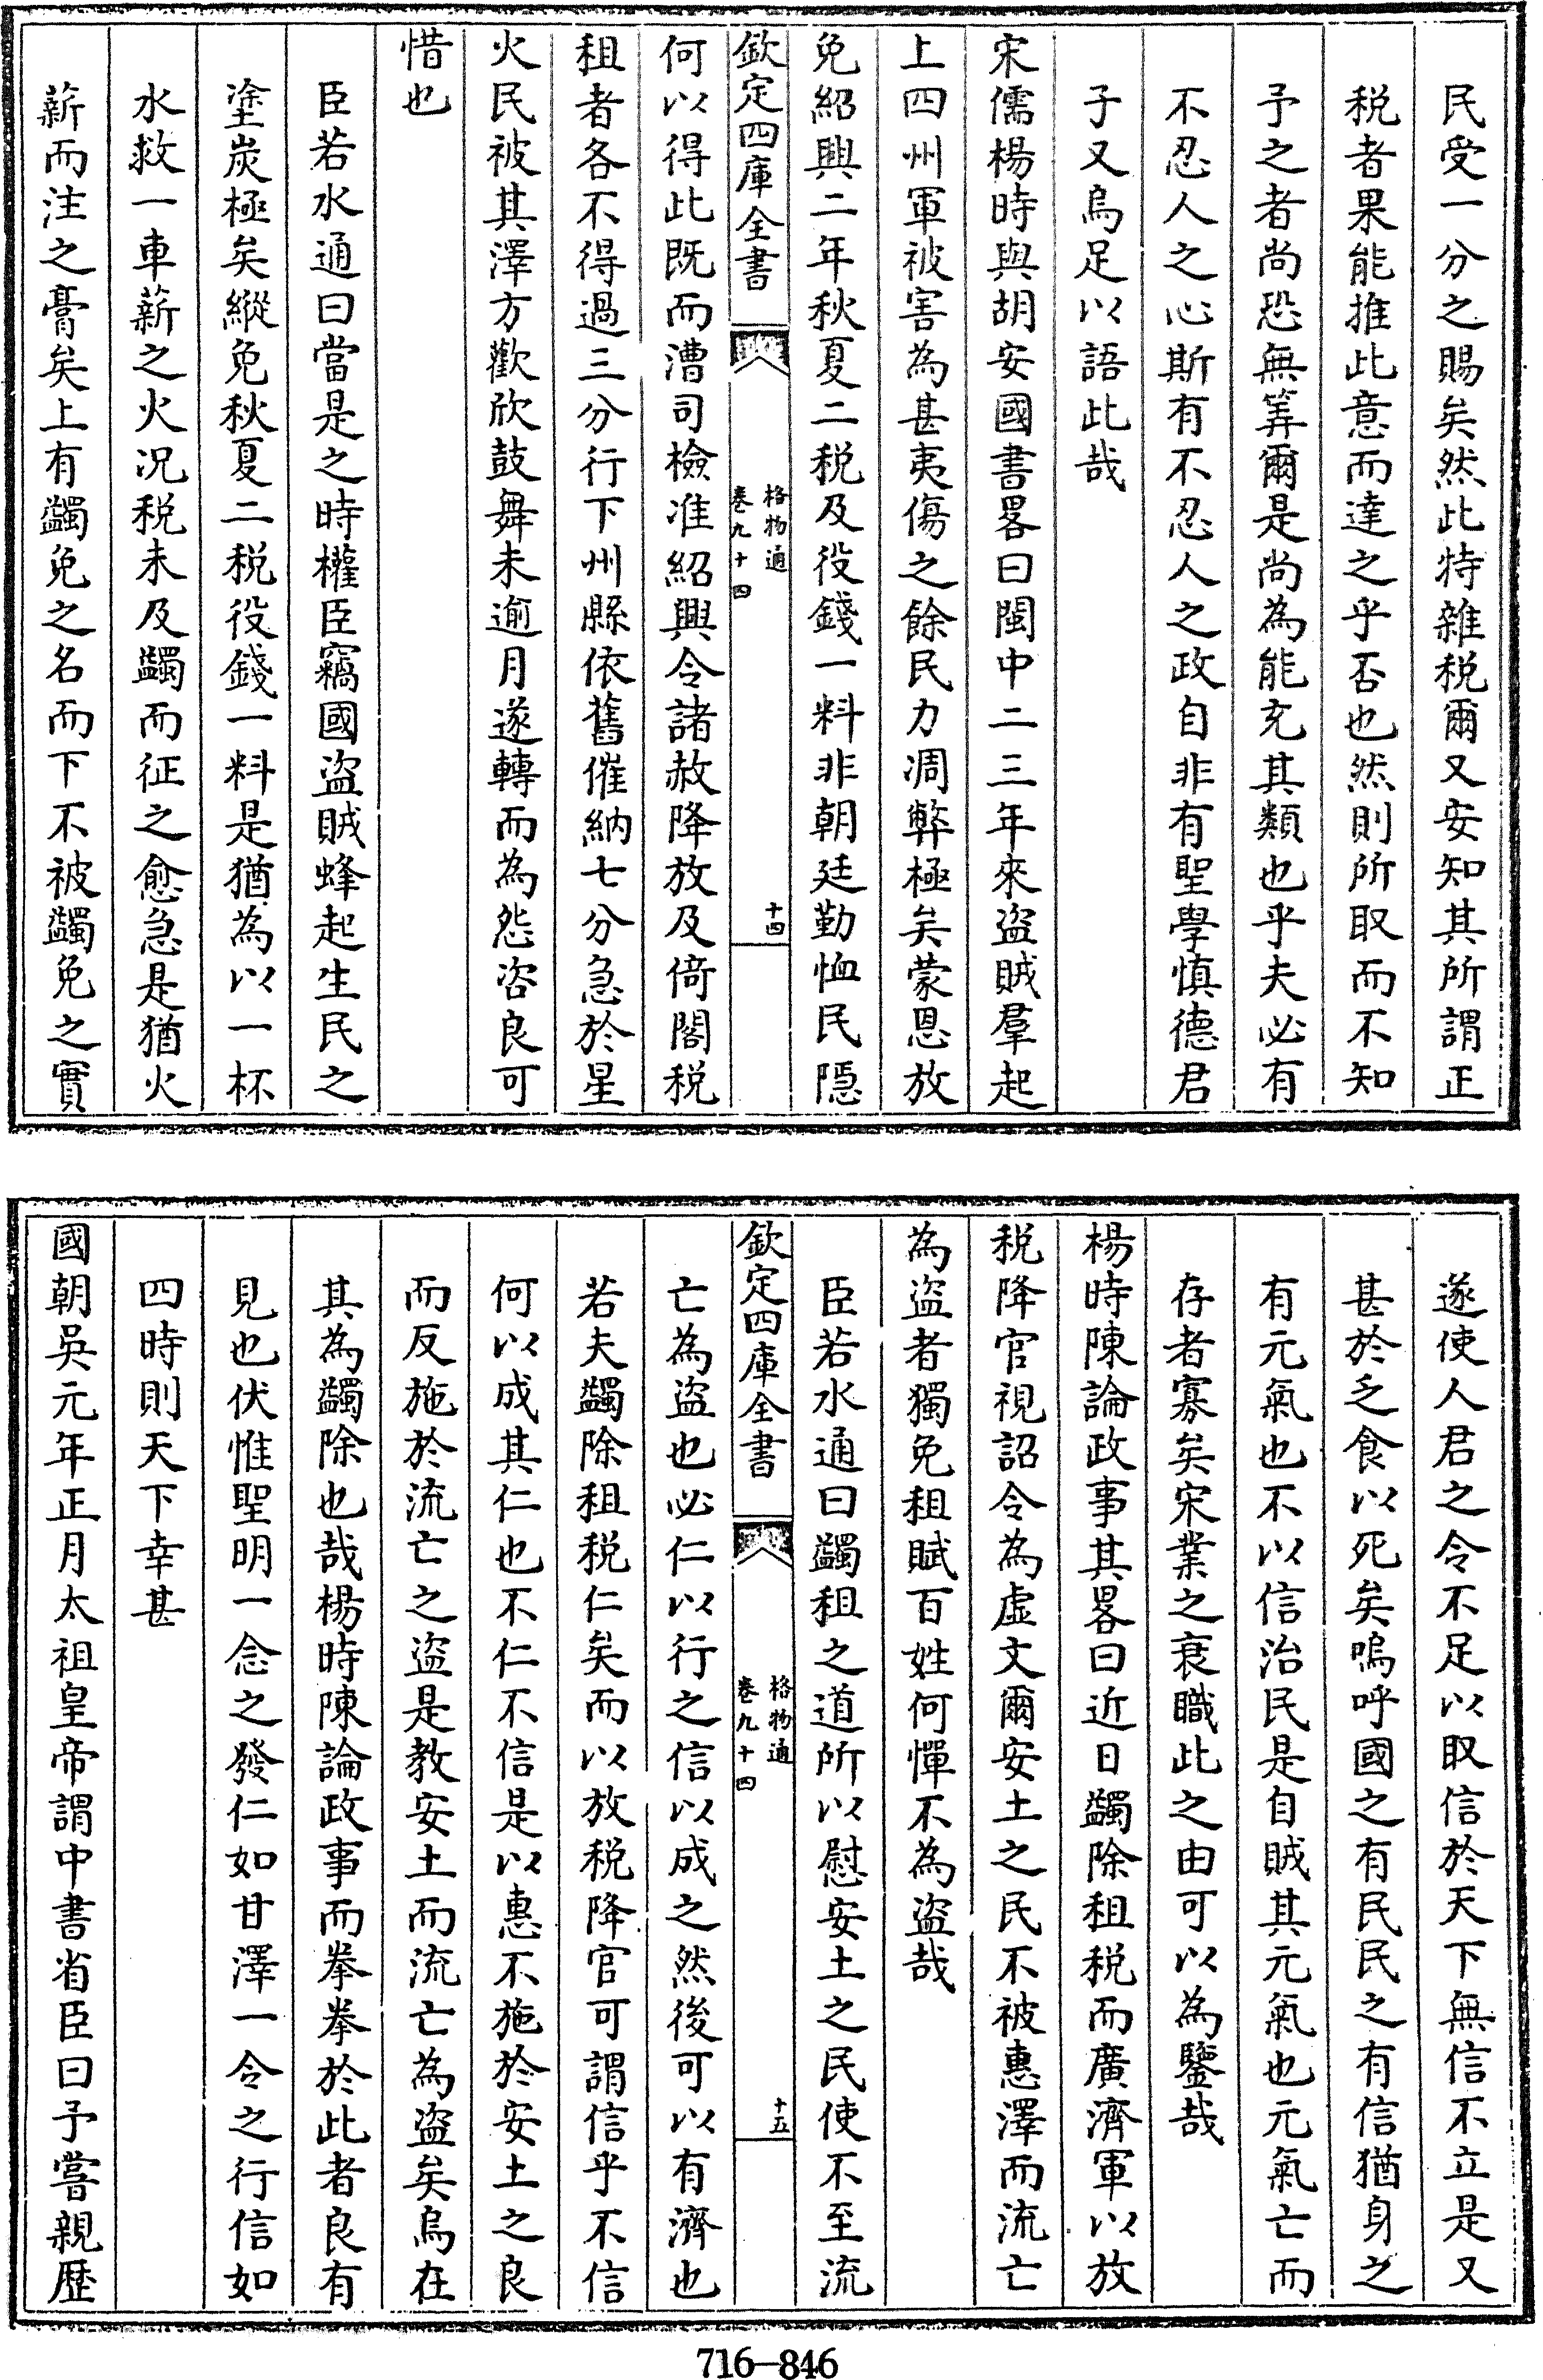 民受一分之賜矣然此特雜税爾又安知其所謂正
税者果能推此意而達之乎否也然則所取而不知
予之者尚恐無筭爾是尚為能充其類也乎夫必有
不忍人之心斯有不忍人之政自非有聖學慎德君
子又烏足以語此哉
宋儒楊時與胡安國書畧曰閩中二三年來盜賊羣起
上四州軍被害為甚夷傷之餘民力凋弊極矣蒙恩放
免紹興二年秋夏二税及役錢一料非朝廷勤恤民隠
欽定四庫全書
格物通
卷九十四
十四
何以得此既而漕司檢准紹興令諸赦降放及倚閣税
租者各不得過三分行下州縣依舊催納七分急於星
火民被其澤方歡欣鼓舞未逾月遂轉而為怨咨良可
惜也
臣若水通曰當是之時權臣竊國盜賊蜂起生民之
塗炭極矣縱免秋夏二税役錢一料是猶為以一杯
水救一車薪之火况税未及蠲而征之愈急是猶火
薪而注之膏矣上有蠲免之名而下不被蠲免之實
遂使人君之令不足以取信於天下無信不立是又
甚於乏食以死矣嗚呼國之有民民之有信猶身之
有元氣也不以信治民是自賊其元氣也元氣亡而
存者寡矣宋業之衰職此之由可以為鑒哉
楊時陳論政事其畧曰近日蠲除租税而廣濟軍以放
税降官視詔令為虛文爾安土之民不被惠澤而流亡
為盜者獨免租賦百姓何憚不為盜哉
臣若水通曰蠲租之道所以慰安土之民使不至流
欽定四庫全書
格物通
卷九十四
十五
亡為盜也必仁以行之信以成之然後可以有濟也
若夫蠲除租税仁矣而以放税降官可謂信乎不信
何以成其仁也不仁不信是以惠不施於安土之良
而反施於流亡之盜是教安土而流亡為盜矣烏在
其為蠲除也哉楊時陳論政事而拳拳於此者良有
見也伏惟聖明一念之發仁如甘澤一令之行信如
四時則天下幸甚
國朝吳元年正月太祖皇帝謂中書省臣曰予嘗親歷
716-846